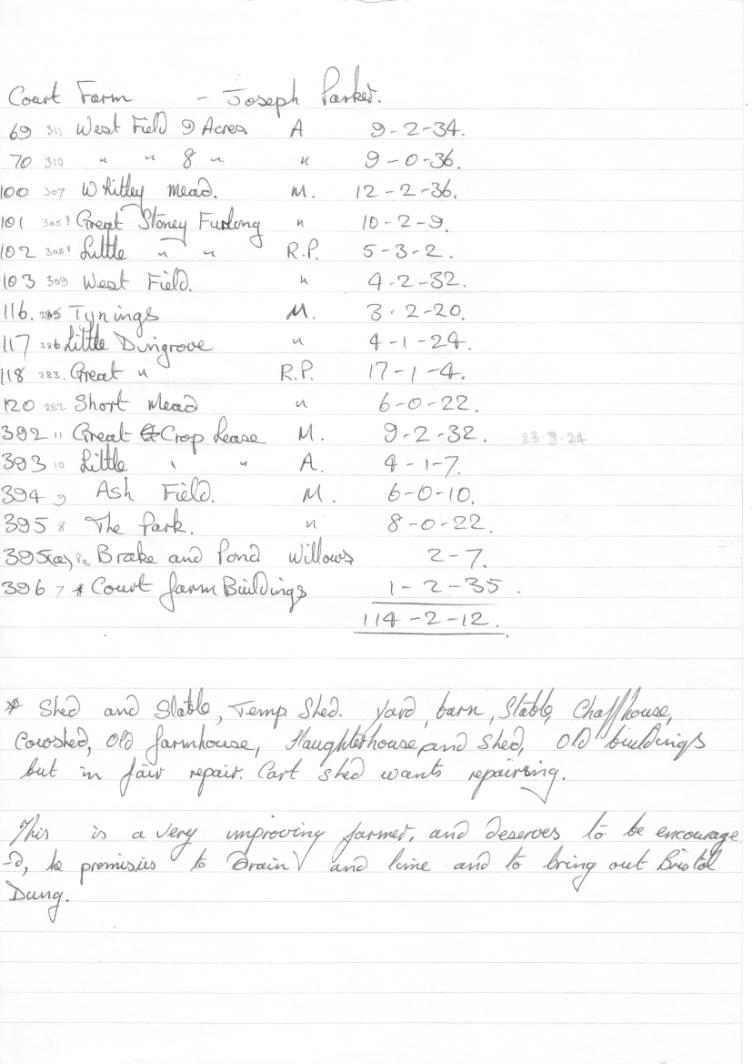 Court Farm - Joseph Parker.
69 311 West Field 9 Acres A 9-2-34.
70 310 " " 8 " " 9-0-36.
100 307 Whitley Mead. M. 12-2-36.
101 305 Great Stoney Furlong " 10-2-9.
102 308 Little " " R.P. 5-3-2.
103 309 West Field. " 4-2-32.
116. 285 Tynings M. 3-2-20.
117 286 Little Dungrove " 4-1-24.
118 283. Great " R.P. 17-1-4.
120 282 Short Mead " 6-0-22.
392 11 Great Crop Lease M. 9-2-32. 23-3-24
393 10 Little " " A. 4-1-7.
394 9 Ash Field. M. 6-0-10.
395 8 The Park. " 8-0-22.
395(a) 8a Brake and Pond Willows 2-7.
396 7 * Court farm Buildings 1-2-35.
114-2-12.
* Shed and Stable, Temp Shed. Yard, barn, Stable, Chaffhouse,
Cowshed, Old farmhouse, Slaughterhouse, and Shed, Old buildings
but in fair repair. Cart shed wants repairing.
This is a very improving farmer, and deserves to be encourage
-d, he promisies to Drain and lime and to bring out Bristol
Dung.